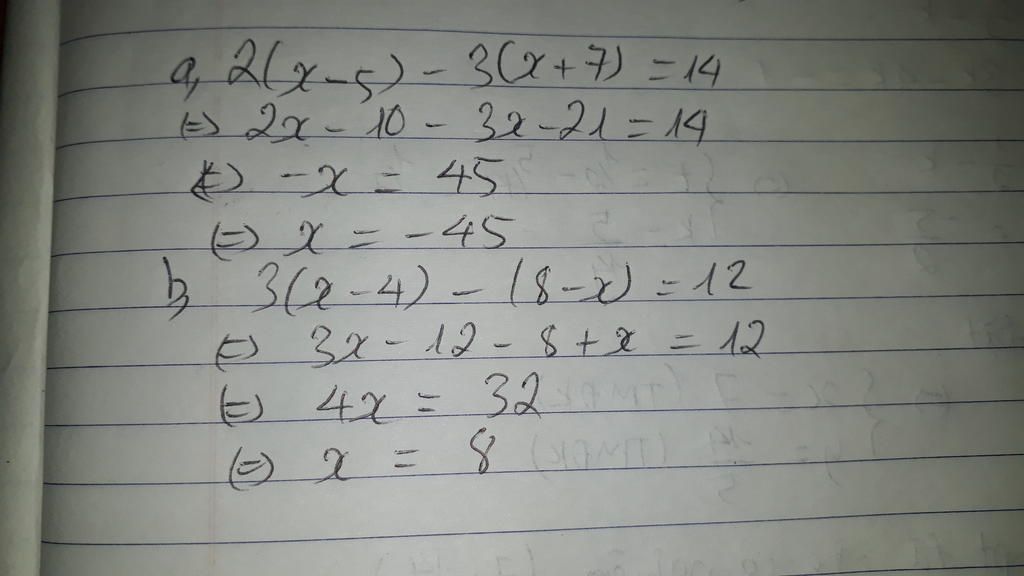 a, 2(x-5) - 3(x+7) = 14
(=) 2x - 10 - 3x - 21 = 14
(=) -x = 45
(=) x = -45
b, 3(x-4) - (8-x) = 12
(=) 3x - 12 - 8 + x = 12
(=) 4x = 32
(=) x = 8